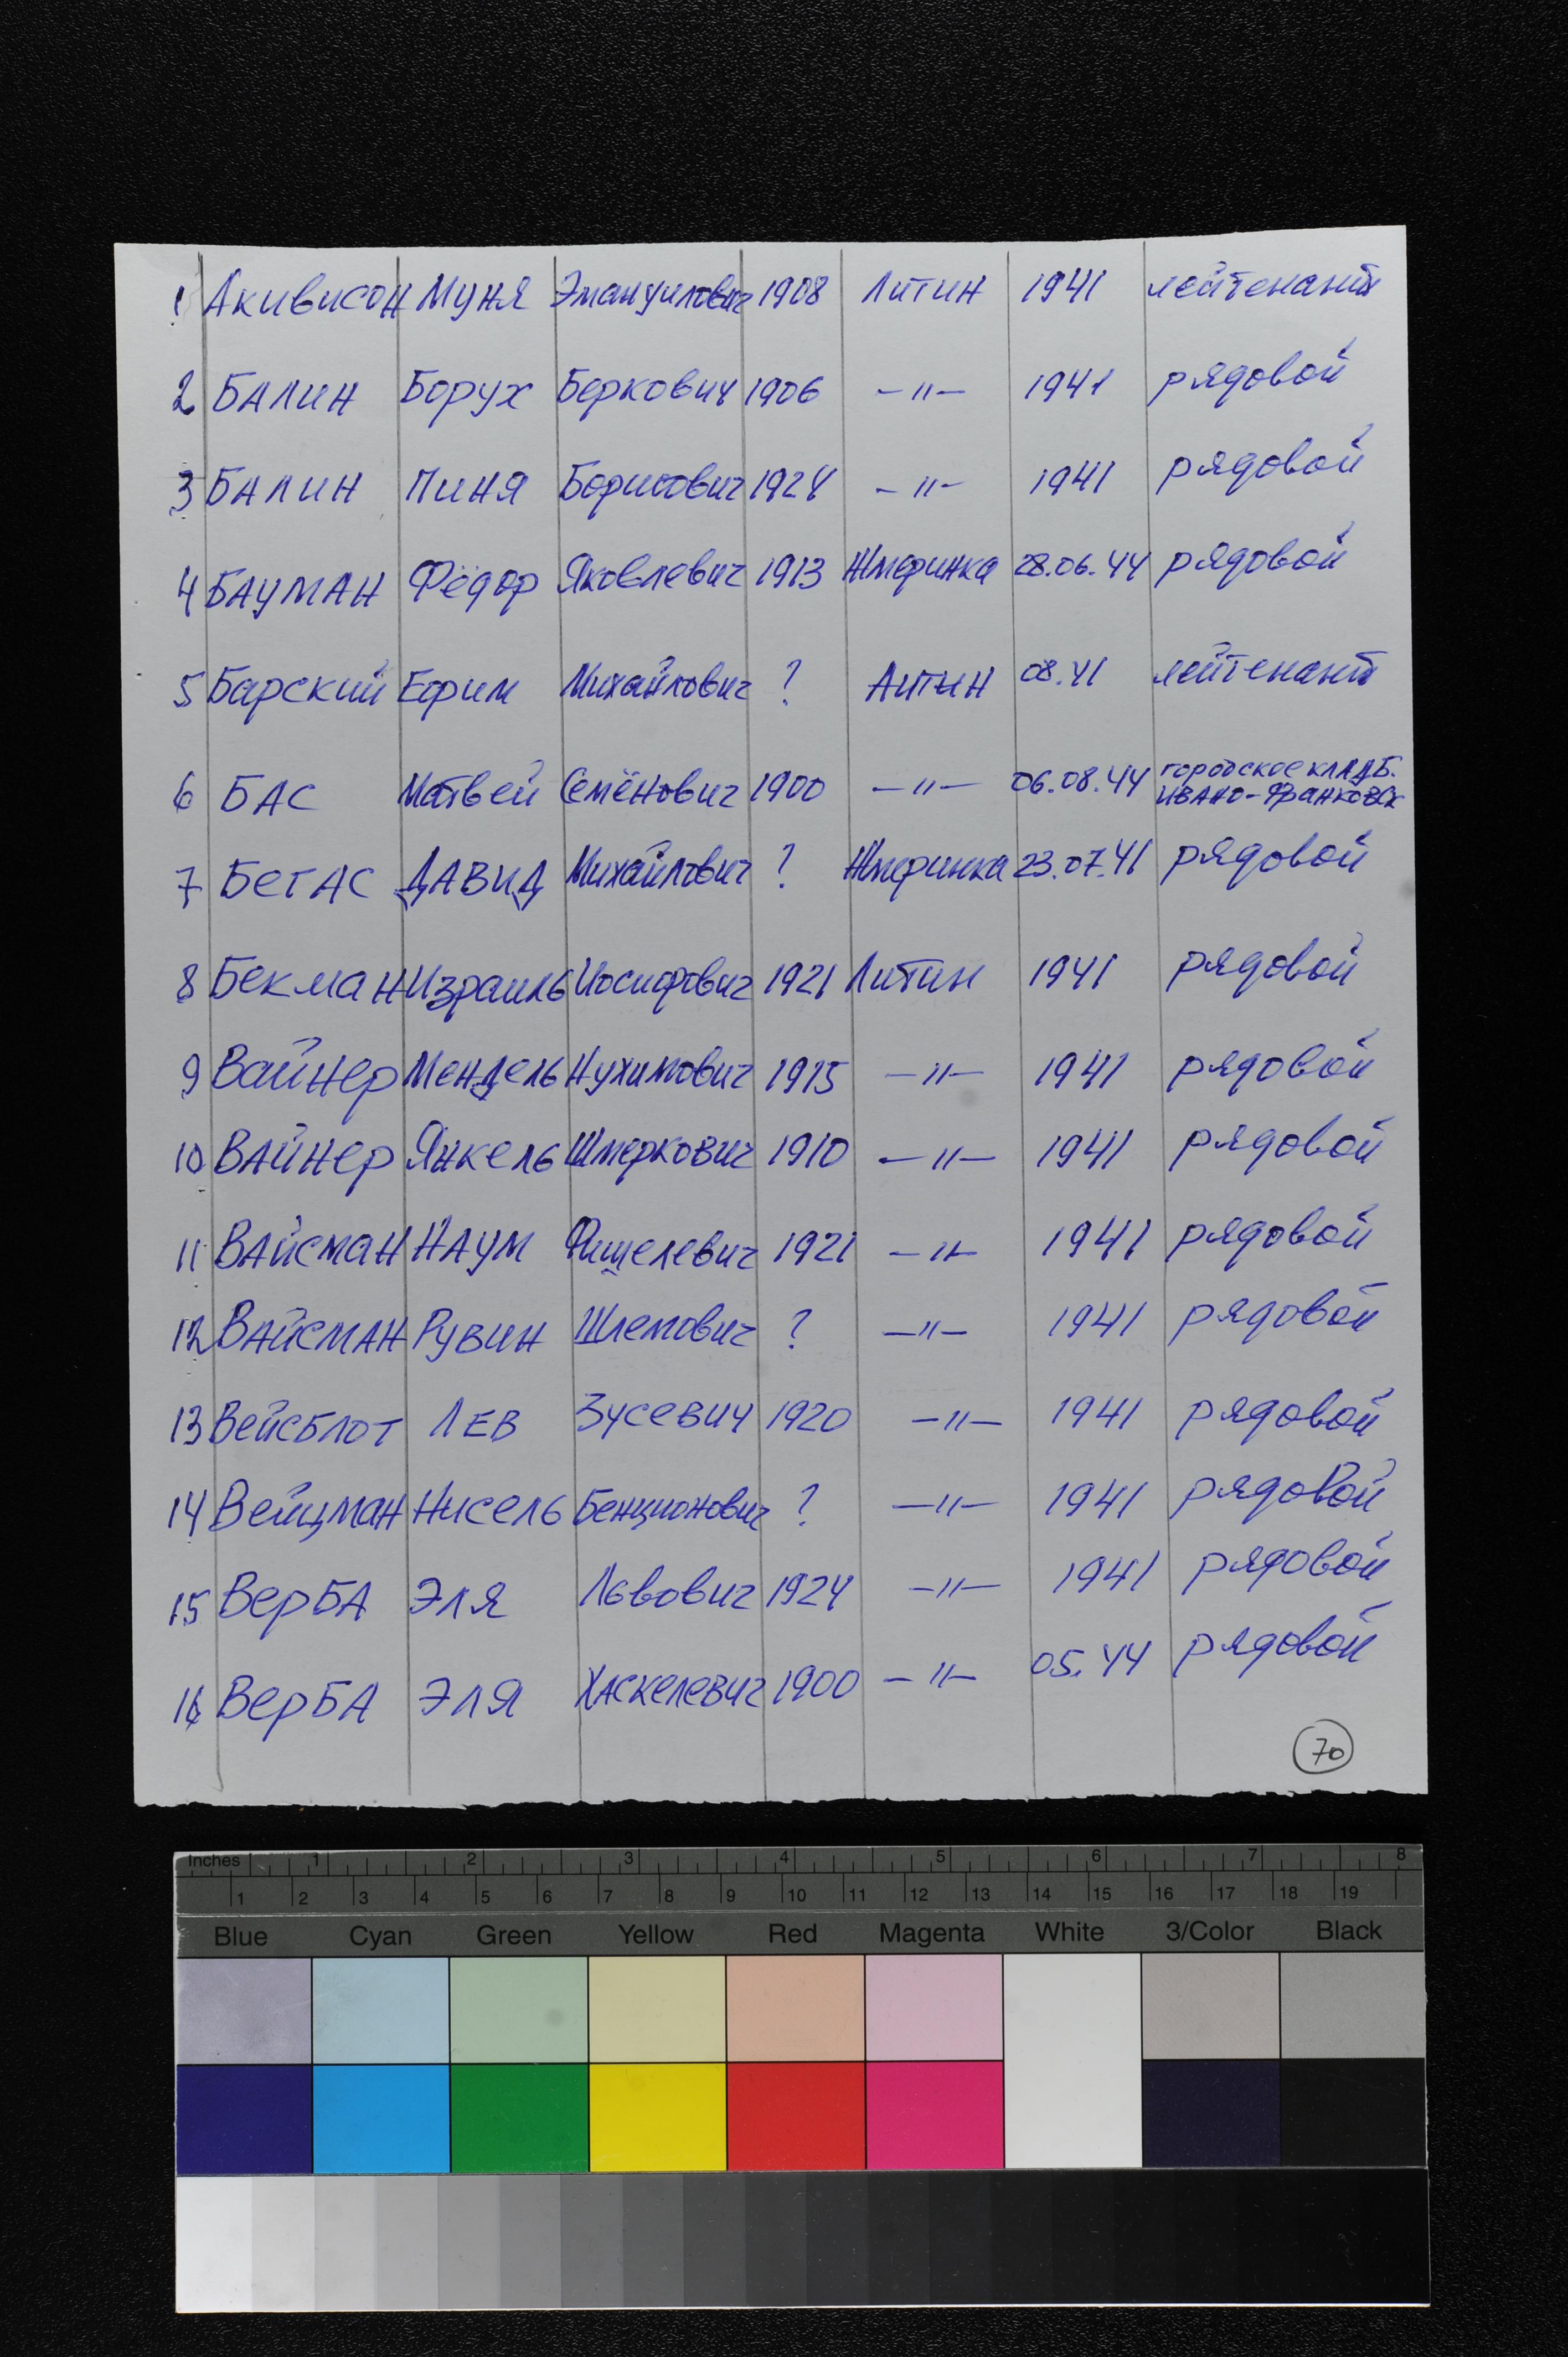 1 Акивисон Муня Эмануилович 1908 Литин 1941 лейтенант
2 БАЛИН Борух Беркович 1906 —"— 1941 рядовой
3 БАЛИН ПИНЯ Борисович 1924 —"— 1941 рядовой
4 БАУМАН Фёдор Яковлевич 1913 Жмеринка 28.06.44 рядовой
5 Барский Ефим Михайлович ? Литин 08.41 лейтенант
6 БАС Матвей Семёнович 1900 —"— 06.08.44 городское КЛАДБ.
ИВАНО-ФРАНКОВСК
7 БЕГАС ДАВИД Михайлович ? Жмеринка 23.07.41 рядовой
8 Бекман Израиль Иосифович 1921 Литин 1941 рядовой
9 Вайнер Мендель Нухимович 1915 —"— 1941 рядовой
10 ВАЙНер Янкель Шмеркович 1910 —"— 1941 рядовой
11 ВАЙсман НАУМ Фишелевич 1921 —"— 1941 рядовой
12 ВАЙСМАН РУВИН Шлемович ? —"— 1941 рядовой
13 Вейсблот ЛЕВ Зусевич 1920 —"— 1941 рядовой
14 Вейцман Нисель Бенционович ? —"— 1941 рядовой
15 ВерБА ЭЛЯ Львович 1924 —"— 1941 рядовой
16 ВерБА ЭЛЯ Хаскелевич 1900 —"— 05.44 рядовой
70
Inches 1 2 3 4 5 6 7 8
1 2 3 4 5 6 7 8 9 10 11 12 13 14 15 16 17 18 19
Blue Cyan Green Yellow Red Magenta White 3/Color Black